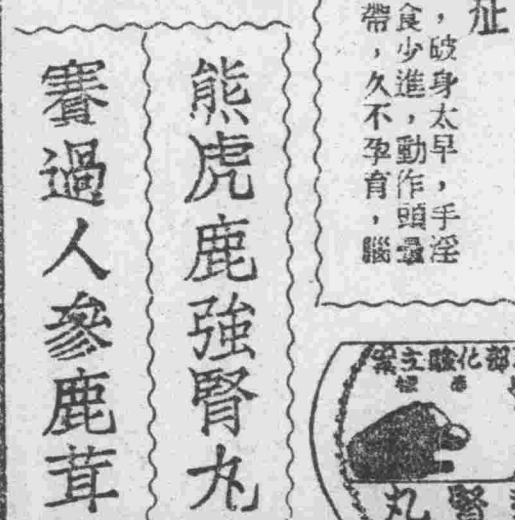 址
，破身太早，手淫
食少進，動作頭暈
帶，久不孕育，腦
熊虎鹿強腎丸
賽過人參鹿茸
部化驗立案
腎丸